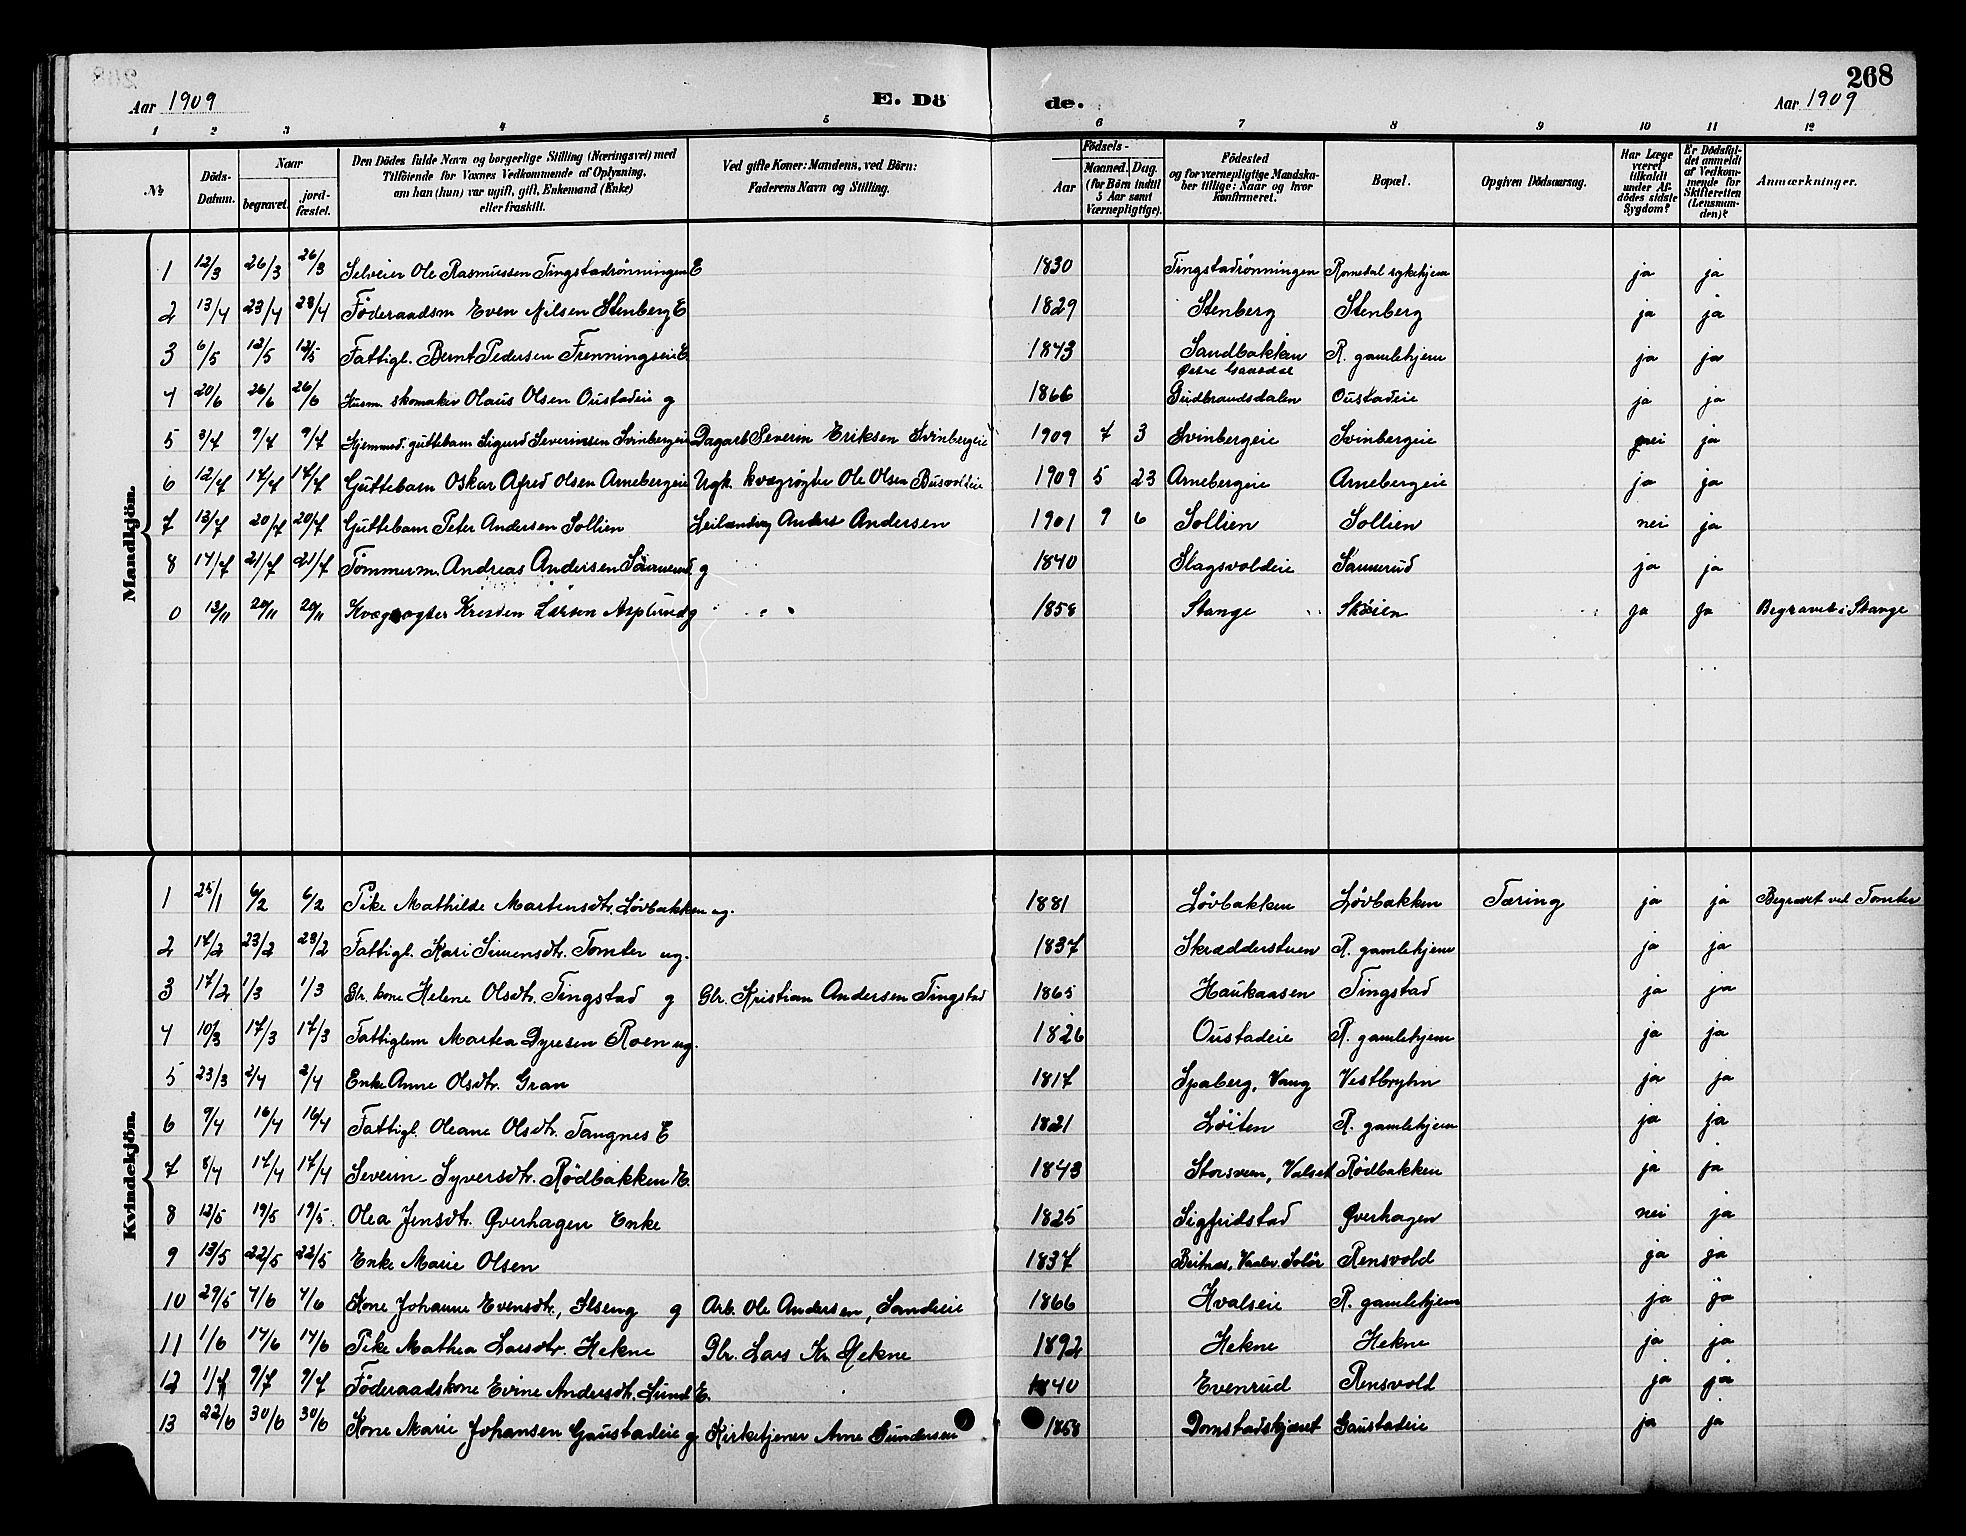 268
Aar 1909 E. Dö de. Aar 1909
1 2 3 4 5 6 7 8 9 10 11 12
№ Döds-Datum. Naar begravet. jord-fæstet. Den Dödes fulde Navn og borgerlige Stilling (Næringsvei) med Tilföiende for Voxnes Vedkommende af Oplysning, om han (hun) var ugift, gift, Enkemand (Enke) eller fraskilt. Ved gifte Koner: Mandens, ved Börn: Faderens Navn og Stilling. Födsels- Aar Maaned. Dag. (for Börn indtil 5 Aar samt Værnepligtige). Födested og for værnepligtige Mandska-ber tillige: Naar og hvor konfirmeret. Bopæl. Opgiven Dödsaarsag. Har Læge været tilkaldt under Af-dödes sidste Sygdom? Er Dödsfal-det anmeldt af Vedkom-mende for Skifteretten (Lensman-den)? Anmærkninger.
Mandkjön.
1 12/3 26/3 26/3 Selveier Ole Rasmussen Tingstadrønningen E 1830 Tingstadrønningen Romedal sykehjem ja ja
2 13/4 23/4 23/4 Föderaadsm Even Nilsen Stenberg E 1829 Stenberg Stenberg ja ja
3 6/5 12/5 12/5 Fattigl. Bernt Pedersen Frenningseie E 1843 Sandbakken R. gamlehjem ja ja
4 20/6 26/6 26/6 Husm. skomaker Olaus Olsen Oustadeie g 1866 Gudbrandsdalen Oustadeie ja ja
5 3/7 9/7 9/7 Hjemmed. guttebarn Sigurd Severinsen Svinbergeie Dagarb Severin Eriksen Svinbergeie 1909 7 3 Svinbergeie Svinbergeie nei ja
6 12/7 17/7 17/7 Guttebarn Oskar Alfred Olsen Arnebergeie Ugk. kvægrøgter Ole Olsen Busvoldeie 1909 5 23 Arnebergeie Arnebergeie ja ja
7 13/7 20/7 20/7 Guttebarn Peter Andersen Sollien Leilending Anders Andersen 1901 9 6 Sollien Sollien nei ja
8 14/7 21/7 21/7 Tømmerm. Andreas Andersen Sannerud g 1840 Slagsvoldeie Sannerud ja ja
0 13/11 20/11 20/11 Kvægrogter Kresten Larsen Asplund g 1858 Stange Skøien ja ja Begravet i Stange
Kvindekjön.
1 25/1 6/2 6/2 Pike Mathilde Martensdtr. Løvbakken ug. 1881 Løvbakken Løvbakken Tæring ja ja Begravet ved Tomter
2 14/2 23/2 23/2 Fattigl. Kari Simensdtr. Tomter ug. 1837 Skrædderstuen R. gamlehjem ja ja
3 17/2 1/3 1/3 Gbr. kone Helene Olsdtr. Tingstad g Gbr. Kristian Andersen Tingstad 1865 Haukaasen Tingstad ja ja
4 10/3 17/3 17/3 Fattiglem Martea Dyresen Roen ug. 1826 Oustadeie R. gamlehjem ja ja
5 23/3 2/4 2/4 Enke Anne Olsdtr. Gran 1817 Spaberg, Vang Vestbryhn ja ja
6 9/4 16/4 16/4 Fattigl. Oleane Olsdtr. Tangnes E 1821 Løiten R. gamlehjem ja ja
7 8/4 17/4 17/4 Severin Syversdtr. Rødbakken E. 1843 Storsveen, Valset Rødbakken ja ja
8 12/5 19/5 19/5 Olea Jensdtr. Øverhagen Enke 1825 Sigfridstad Øverhagen nei ja
9 13/5 22/5 22/5 Enke Marie Olsen 1837 Solör Rensvold ja ja
10 29/5 4/6 4/6 Kone Johanne Evensdtr., Ilseng g Arb. Ole Andersen, Sandeie 1866 Hvalseie R. gamlehjem ja ja
11 1/6 14/6 14/6 Pike Mathea Larsdtr. Hekne Gbr. Lars Kr. Hekne 1892 Hekne Hekne ja ja
12 1/7 9/7 9/7 Föderaadskone Evine Andersdtr. Lund E. 1840 Evenrud Rensvold ja ja
13 22/6 30/6 30/6 Kone Marie Johansen Gaustadeie g Kirketjener Arne Gundersen 1858 Domstadskjæret Gaustadeie ja ja